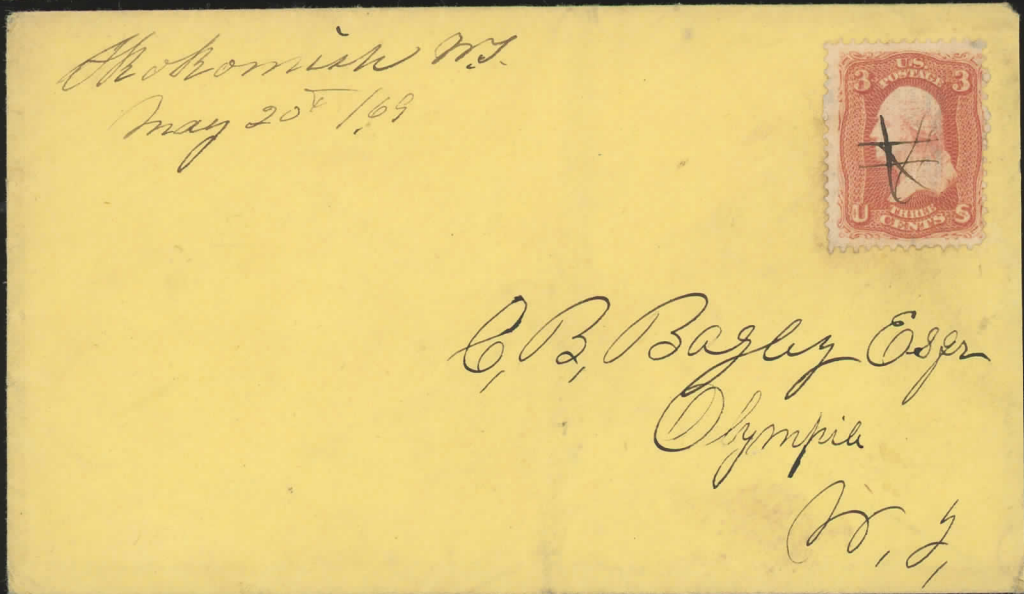 Skokomish W.T.
May 20th /69
3 U.S. 3
POSTAGE
THREE
U CENTS S
C, B, Bagley Esqr
Olympia
W, T,